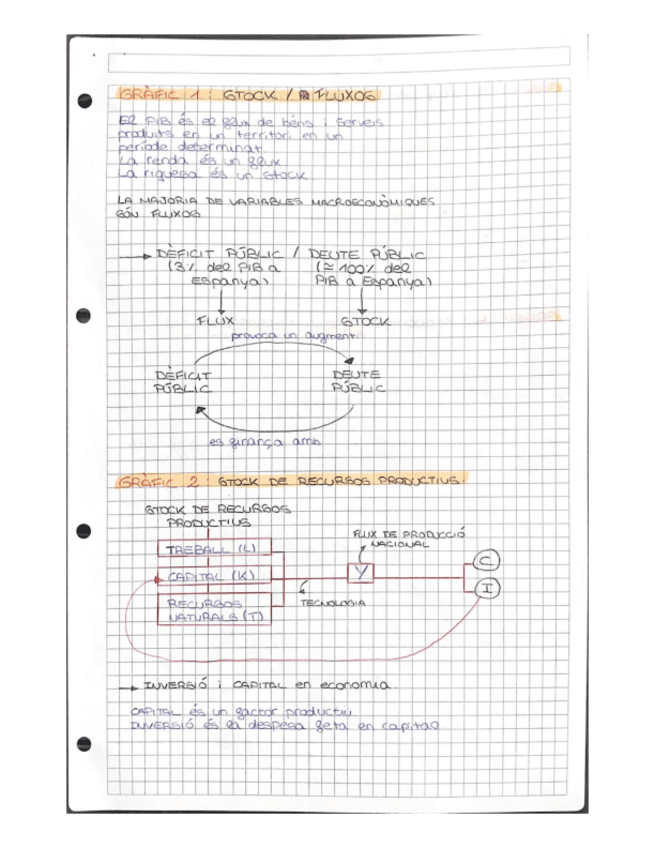 GRÀFIC 1: STOCK / FLUXOS
El PIB és el flux de béns i serveis
produits en un territori en un
període determinat
La renda és un flux
La riquesa és un stock.
LA MAJORIA DE VARIABLES MACROECONÒMIQUES
SÓN FLUXOS
DÈFICIT PÚBLIC / DEUTE PÚBLIC
(3% del PIB a (≃ 100% del
Espanya) PIB a Espanya)
FLUX STOCK
provoca un augment
DÈFICIT DEUTE
PÚBLIC PÚBLIC
es finança amb
GRÀFIC 2: STOCK DE RECURSOS PRODUCTIUS.
STOCK DE RECURSOS
PRODUCTIUS
FLUX DE PRODUCCIÓ
NACIONAL
TREBALL (L)
C
CAPITAL (K)
Y
I
RECURSOS
NATURALS (T)
TECNOLOGIA
INVERSIÓ i CAPITAL en economia.
CAPITAL és un factor productiu
INVERSIÓ és la despesa feta en capital